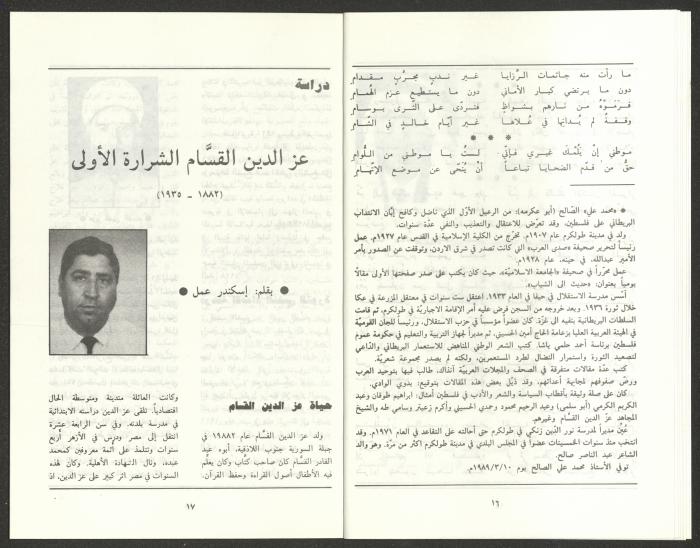 ما رأت منه جاثمات الرَّزايا غير ندبٍ مجرَّبٍ مقدامِ
دون ما يرتضي كبار الأماني دون ما يستطيع عزم الهُمامِ
فرمَوْهُ من نارهم بشواظٍ فتردّى على الثرى بوسامِ
وقفةٌ لم يُدانِها في عُلاها غير أيّام خالدٍ في الشّامِ
* * *
موطني إنْ يَلُمْك غيري فإنّي لستُ يا موطني من اللُّوامِ
حقٌّ من قدّم الضحايا تباعاً أنْ يُنَحّى عن موضع الإتّهامِ
● «محمد علي» الصّالح (أبو عكرمه): من الرعيل الأوّل الذي ناضل وكافح إبّان الانتداب
البريطاني على فلسطين. وقد تعرّض للاعتقال والتعذيب والنفي عدّة سنوات.
ولد في مدينة طولكرم عام ١٩٠٧م. تخرّج من الكلية الإسلامية في القدس عام ١٩٢٧م. عمل
رئيساً لتحرير صحيفة «صدى العرب» التي كانت تصدر في شرق الاردن، وتوقفت عن الصدور بأمر
الأمير عبدالله، في حينه، عام ١٩٢٨م.
عمل محرّراً في صحيفة «الجامعة الاسلاميّة»، حيث كان يكتب على صدر صفحتها الأولى مقالاً
يومياً بعنوان: «حديث الى الشباب».
أسّس مدرسة الاستقلال في حيفا في العام ١٩٣٣. اعتقل ست سنوات في معتقل المزرعة في عكا
خلال ثورة ١٩٣٦. وبعد خروجه من السجن فرض عليه أمر الإقامة الاجباريّة في طولكرم، ثم قامت
السلطات البريطانية بنفيه الى غزّة. كان عضواً مؤسساً في حزب الاستقلال، ورئيساً للّجان القوميّة
في الهيئة العربية العليا بزعامة الحاج أمين الحسيني. ثم مديراً لجهاز التربية والتعليم في حكومة عموم
فلسطين برئاسة أحمد حلمي باشا. كتب الشعر الوطني المناهض للاستعمار البريطاني والدّاعي
لتصعيد الثورة واستمرار النضال لطرد المستعمرين، ولكنه لم يصدر مجموعة شعريّة.
كتب عدّة مقالات متفرقة في الصحف والمجلات العربيّة آنذاك، طالب فيها بتوحيد العرب
ورصّ صفوفهم لمجابهة أعدائهم. وقد ذيّل بعض هذه المقالات بتوقيع: بدوي الوادي.
كان على صلة وثيقة بأقطاب السياسة والشعر والأدب في فلسطين أمثال: ابراهيم طوقان وعبد
الكريم الكرمي (أبو سلمى) وعبد الرحيم محمود وحمدي الحسيني وأكرم زعيتر وسامي طه والشيخ
المجاهد عزّ الدين القسّام وغيرهم.
عُيِّنَ مديراً لمدرسة نور الدّين زنكي في طولكرم حتى أحالته على التقاعد في العام ١٩٧١م. وقد
انتخب منذ سنوات الخمسينات عضواً في المجلس البلدي في مدينة طولكرم أكثر من مرّة. وهو والد
الشاعر عبد الناصر صالح.
توفي الأستاذ محمد علي الصالح يوم ١٩٨٩/٣/١٠م.
١٦
دراسة
عز الدين القسَّام الشرارة الأولى
(١٨٨٢ - ١٩٣٥)
● بقلم: إسكندر عمل ●
حياة عز الدين القسام
ولد عز الدين القسَّام عام ١٩٨٨٢ في
جبلة السورية جنوب اللاذقية، أبوه عبد
القادر القسَّام كان صاحب كتَّاب وكان يعلِّم
فيه الأطفال أصول القراءة وحفظ القرآن.
وكانت العائلة متدينة ومتوسطة الحال
اقتصادياً. تلقى عز الدين دراسته الابتدائية
في مدرسة بلدته. وفي سن الرابعة عشرة
انتقل إلى مصر ودرس في الأزهر أربع
سنوات وتتلمذ على أئمة معروفين كمحمد
عبده، ونال الشهادة الأهلية. وكان لهذه
السنوات في مصر اثر كبير على عز الدين، اذ
١٧